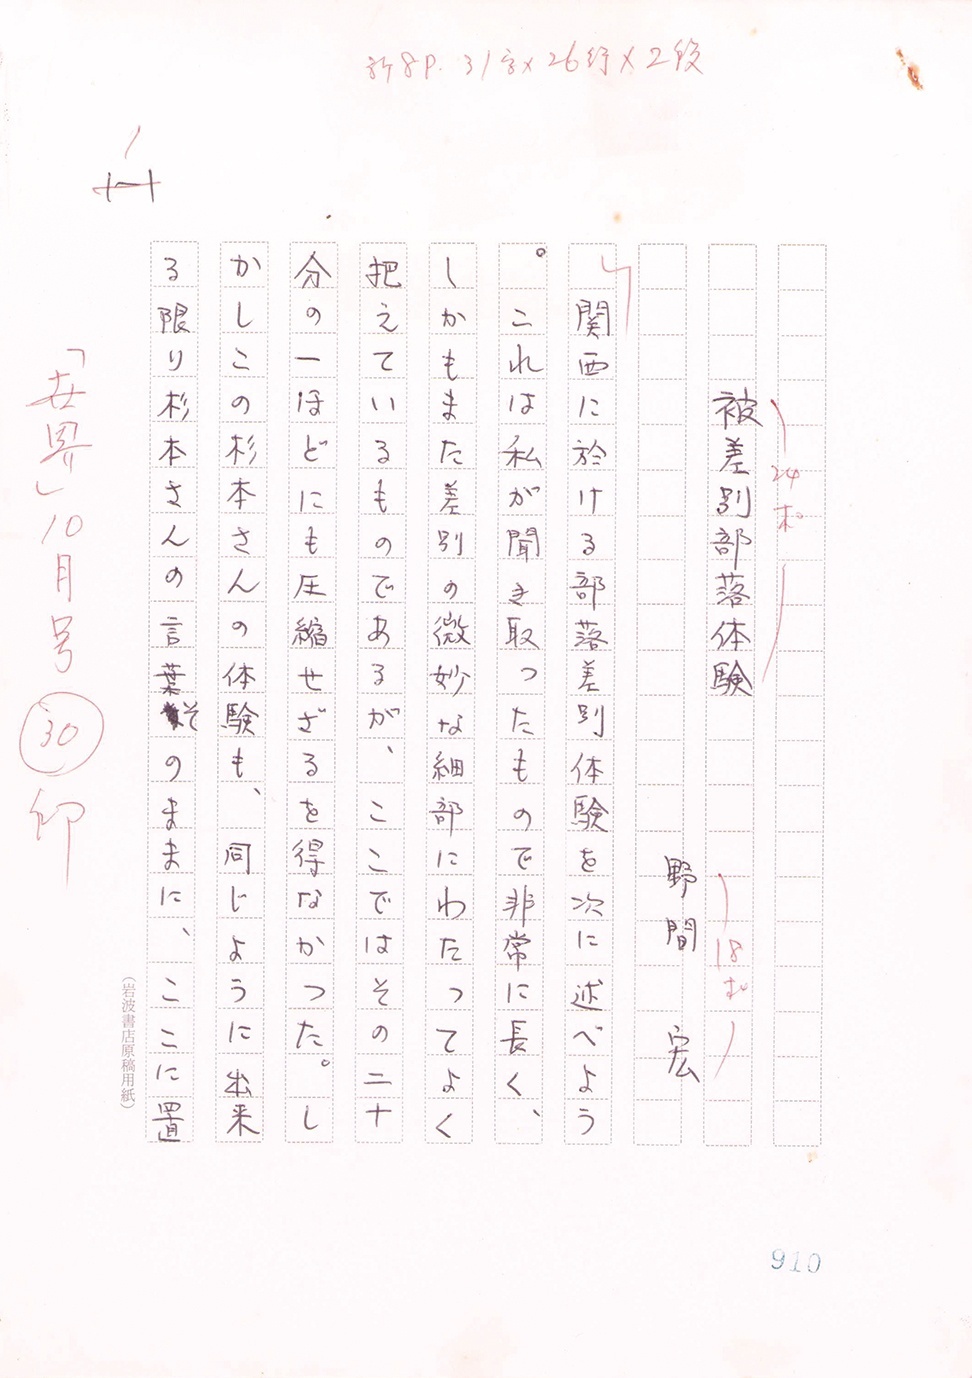 新8P. 31字×26行×2段
被差別部落体験
24ポ
野間 宏
18ポ
関西に於ける部落差別体験を次に述べよう
。これは私が聞き取ったもので非常に長く、
しかもまた差別の微妙な細部にわたってよく
把えているものであるが、ここではその二十
分の一ほどにも圧縮せざるを得なかった。し
かしこの杉本さんの体験も、同じように出来
る限り杉本さんの言葉そのままに、ここに置
(岩波書店原稿用紙)
「世界」10月号 30 印
910